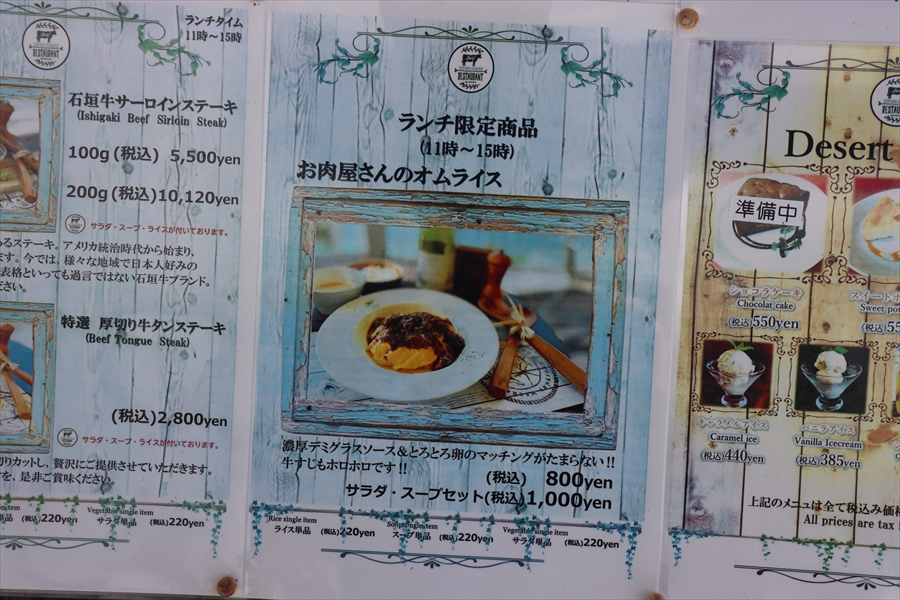 ランチタイム
11時～15時
RESTAURANT
石垣牛サーロインステーキ
(Ishigaki Beef Sirloin Steak)
100g(税込) 5,500yen
200g(税込)10,120yen
サラダ・スープ・ライスが付いております。
あるステーキ。アメリカ統治時代から始まり、
ます。今では、様々な地域で日本人好みの
表格といっても過言ではない石垣牛ブランド。
ださい。
特選 厚切り牛タンステーキ
(Beef Tongue Steak)
(税込)2,800yen
サラダ・スープ・ライスが付いております。
切りカットし、贅沢にご提供させていただきます。
を、是非ご賞味ください。
Vegetable single item
単品 (税込)220yen サラダ単品 (税込)220yen
RESTAURANT
ランチ限定商品
(11時～15時)
お肉屋さんのオムライス
濃厚デミグラスソース&とろとろ卵のマッチングがたまらない!!
牛すじもホロホロです!!
(税込) 800yen
サラダ・スープセット(税込)1,000yen
Rice single item Soup single item Vegetable single item
ライス単品 (税込)220yen スープ単品 (税込)220yen サラダ単品 (税込)220yen
Desert
準備中
ショコラケーキ
Chocolat cake
(税込)550yen
スイートポ
Sweet pot
(税込)55
キャラメルアイス
Caramel ice
(税込)440yen
バニラアイス
Vanilla Icecream
(税込)385yen
上記のメニューは全て税込み価格
All prices are tax i